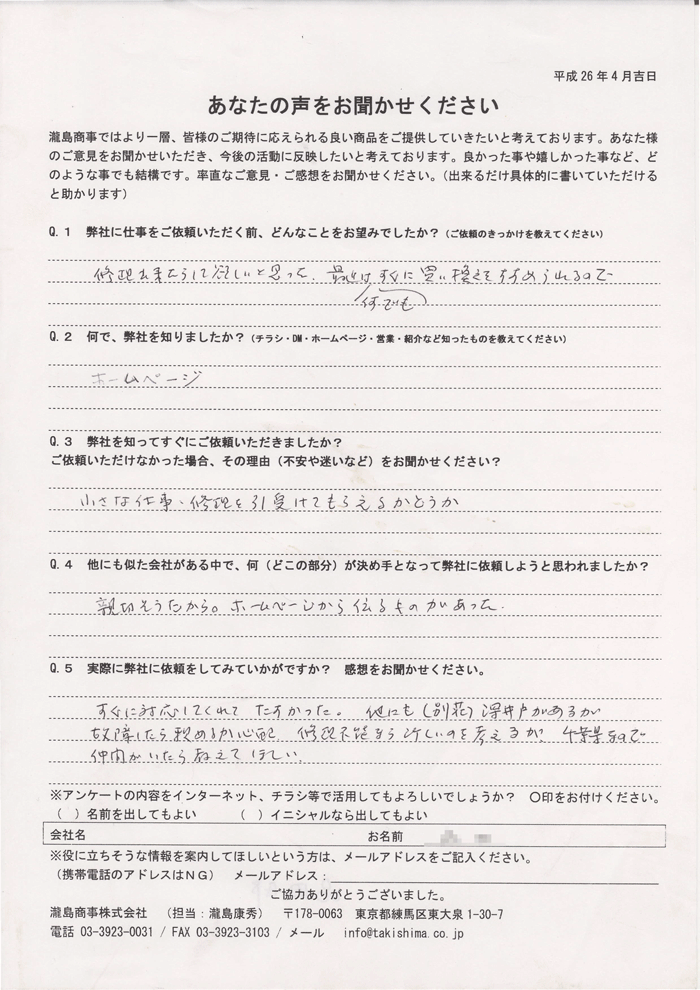 平成26年4月吉日
あなたの声をお聞かせください
瀧島商事ではより一層、皆様のご期待に応えられる良い商品をご提供していきたいと考えております。あなた様
のご意見をお聞かせいただき、今後の活動に反映したいと考えております。良かった事や嬉しかった事など、ど
のような事でも結構です。率直なご意見・ご感想をお聞かせください。（出来るだけ具体的に書いていただける
と助かります）
Q.1 弊社に仕事をご依頼いただく前、どんなことをお望みでしたか？（ご依頼のきっかけを教えてください）
修理出来たらして欲しいと思った．最近はすぐに買い換えをすすめられるので
何でも
Q.2 何で、弊社を知りましたか？（チラシ・DM・ホームページ・営業・紹介など知ったものを教えてください）
ホームページ
Q.3 弊社を知ってすぐにご依頼いただきましたか？
ご依頼いただけなかった場合、その理由（不安や迷いなど）をお聞かせください？
小さな仕事・修理を引受けてもらえるかどうか
Q.4 他にも似た会社がある中で、何（どこの部分）が決め手となって弊社に依頼しようと思われましたか？
親切そうだから。ホームページから伝るものがあった．
Q.5 実際に弊社に依頼をしてみていかがですか？ 感想をお聞かせください。
すぐに対応してくれて たすかった。 他にも（別荘）深井戸があるが
故障したら 心配 修理不能なら 新しいのを考えるが．千葉県なので
仲間がいたら教えてほしい．
※アンケートの内容をインターネット、チラシ等で活用してもよろしいでしょうか？ ○印をお付けください。
（ ）名前を出してもよい （ ）イニシャルなら出してもよい
会社名 お名前
※役に立ちそうな情報を案内してほしいという方は、メールアドレスをご記入ください。
（携帯電話のアドレスはNG） メールアドレス：
ご協力ありがとうございました。
瀧島商事株式会社 （担当：瀧島康秀） 〒178-0063 東京都練馬区東大泉1-30-7
電話 03-3923-0031 / FAX 03-3923-3103 / メール info@takishima.co.jp